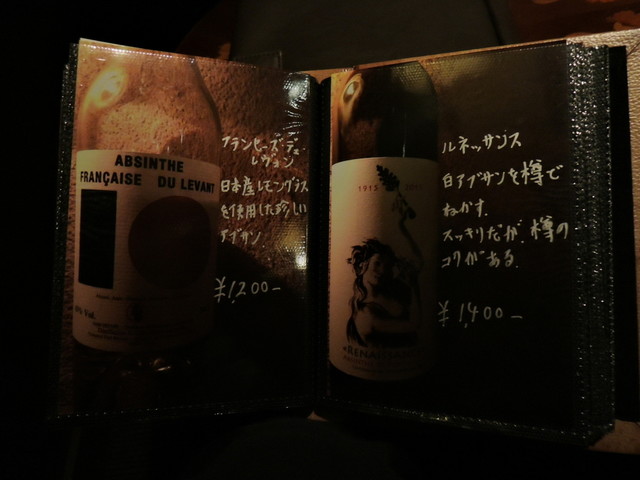 ABSINTHE
FRANÇAISE DU LEVANT
フランセーズ・デュ・
レヴァン
日本産レモングラス
を使用した珍しい
アブサン
¥1,200-
1915
RENAISSANCE
ルネッサンス
白アブサンを樽で
ねかす。
スッキリだが、樽の
コクがある。
¥1,400-